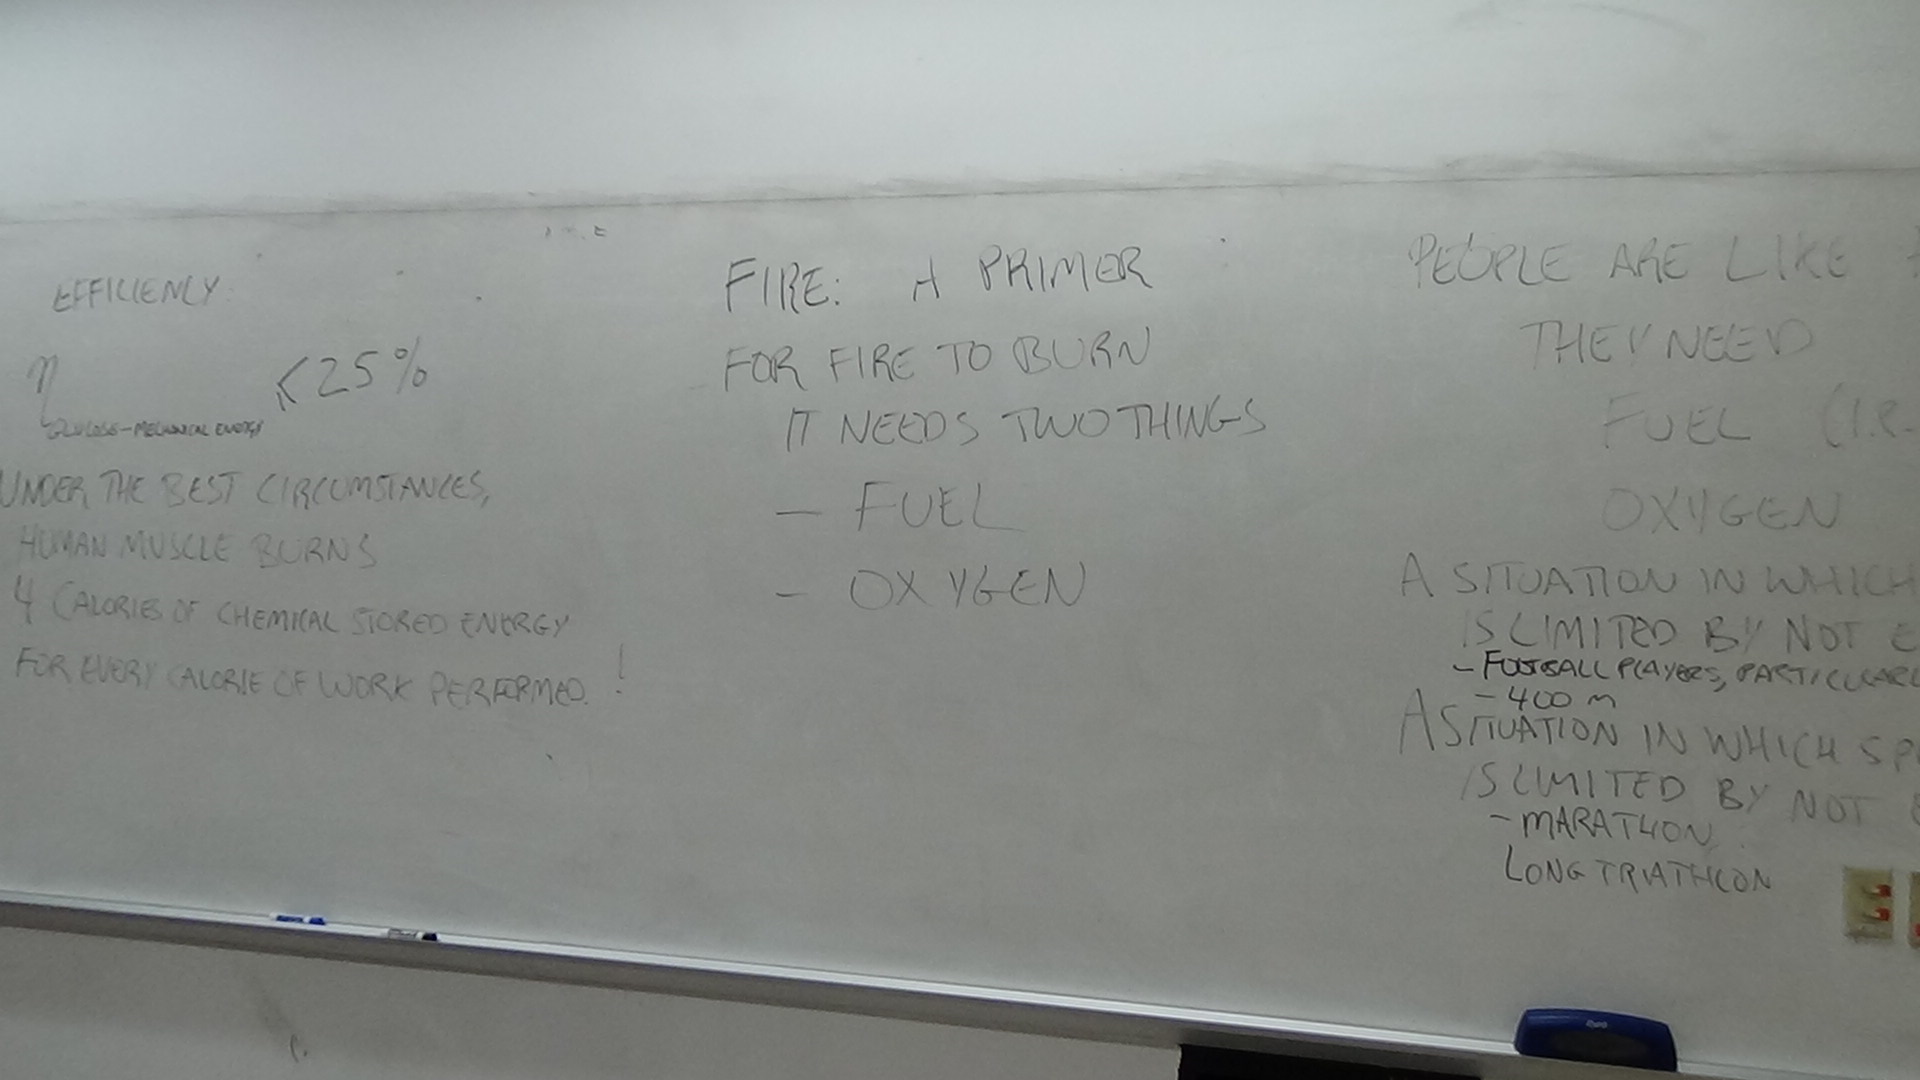 EFFICIENCY:
η <25%
GLUCOSE-MECHANICAL ENERGY
UNDER THE BEST CIRCUMSTANCES,
HUMAN MUSCLE BURNS
4 CALORIES OF CHEMICAL STORED ENERGY
FOR EVERY CALORIE OF WORK PERFORMED!
FIRE: A PRIMER
FOR FIRE TO BURN
IT NEEDS TWO THINGS
- FUEL
- OXYGEN
PEOPLE ARE LIKE
THEY NEED
FUEL (I.E.
OXYGEN
A SITUATION IN WHICH
IS LIMITED BY NOT
- FOOTBALL PLAYERS, PARTICULARL
- 400 m
A SITUATION IN WHICH SP
IS LIMITED BY NOT
- MARATHON
LONG TRIATHLON